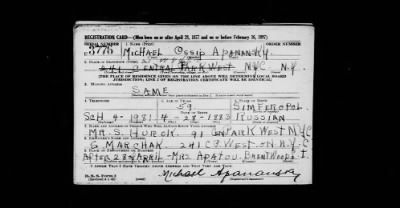 REGISTRATION CARD—(Men born on or after April 28, 1877 and on or before February 16, 1897)
SERIAL NUMBER 1. NAME (Print) ORDER NUMBER
3775 MICHAEL OSSIP APANANSKY
2. PLACE OF RESIDENCE (Print)
241 CENTRAL PARK WEST N.Y.C. N.Y.
[THE PLACE OF RESIDENCE GIVEN ON THE LINE ABOVE WILL DETERMINE LOCAL BOARD
JURISDICTION; LINE 2 OF REGISTRATION CERTIFICATE WILL BE IDENTICAL]
3. MAILING ADDRESS
SAME
4. TELEPHONE 5. AGE IN YEARS 6. PLACE OF BIRTH
59 SIMFEROPOL
SCH 4-1981 4-28-1883 RUSSIAN
7. NAME AND ADDRESS OF PERSON WHO WILL ALWAYS KNOW YOUR ADDRESS
MR. S. HUROK 91 CEN PARK WEST N.Y.C
8. EMPLOYER'S NAME AND ADDRESS
G. MARCHAK. 241 C.P. WEST N.Y.C
9. PLACE OF EMPLOYMENT OR BUSINESS
AFTER 28 APRIL - MRS APATOU. BRENTWOOD
I AFFIRM THAT I HAVE VERIFIED ABOVE ANSWERS AND THAT THEY ARE TRUE.
D. S. S. Form 1
Michael Apanansky